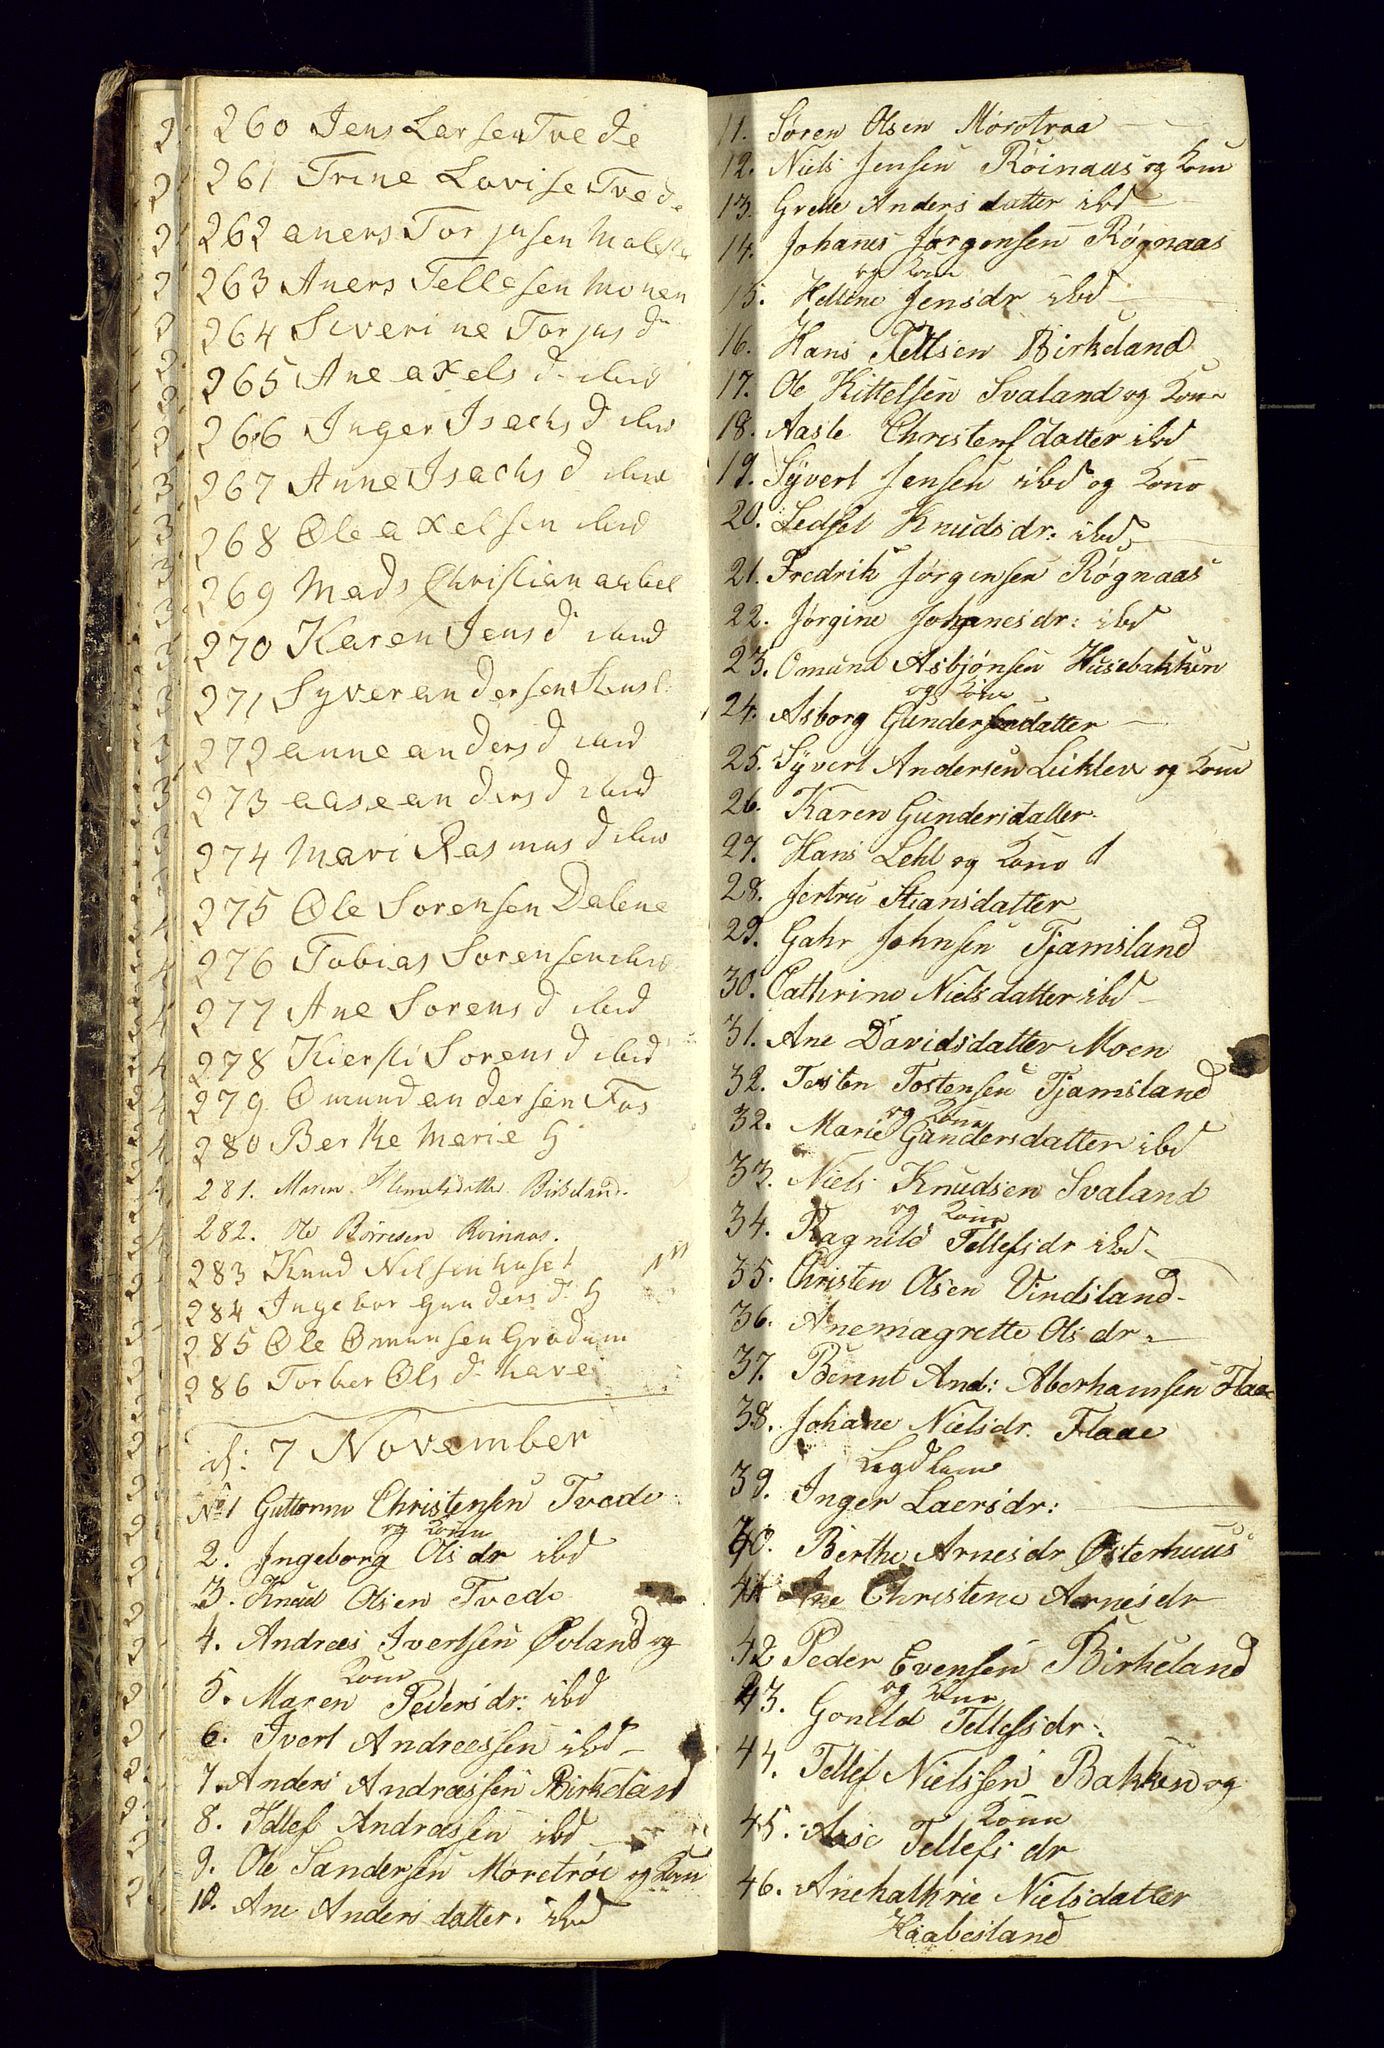 260 Jens Larsen Tvede
261 Trine Lovise Tvede
262 aners Torjusen
263 Aners Tellesen Monen
264 Siverine Torjus dr
265 Ane axels d ibid
266 Inger Isachs d ibid
267 Anne Isachs d ibid
268 Ole axelsen ibid
269 Mads Christian
270 Karen Jens d ibid
271 Syver andersen
272 anne anders d ibid
273 aase anders d ibid
274 Mari Rasmus d ibid
275 Ole Sorensen Dalene
276 Tobias Sorensen ibid
277 Ane Sorens d ibid
278 Kiersti Sorens d ibid
279 Omund andersen Fos
280 Berthe Marie H
281. Maren Birkeland.
282. Ole Rörresen Roinnas.
283 Knud Nilsen huset
284 Ingebor gunders d H
285 Ole Omunsen Grodum
286 Torber Ols d have
d: 7 November
No 1 Guttorm Christensen Tvede
og Kone
2. Ingeborg Ols dr ibd
3. Knud Olsen Tvede
4. Andreas Ivertsen Øvland og
Kone
5. Maren Peders dr. ibd
6. Ivert Andreassen ibd
7. Anders Andreassen Birkelan
8. Tellef Andrassen ibd
9. Ole Sandersen Moretröe og Kone
10. Ane Anders datter. ibd
11. Søren Olsen Morotraa
12. Niels Jensen Röinaas og Kone
13. Grethe Anders datter ibd
14. Johanes Jørgensen Røgnaas
og Kone
15. Hellene Jensdr ibd
16. Hans Tellsen Birkeland
17. Ole Kittelsen Svaland og Kone
18. Aasle Christensdatter ibd
19. Syvert Jensen ibd og Kone
20. Ledsel Knudsdr: ibd
21. Fredrik Jørgensen Røgnaas
22. Jørgine Johanesdr: ibd
23. Omund Asbjønsen Husebakken
og Kone
24. Asborg Gundersendatter
25. Syvert Andersen Liklev og Kone
26. Karen Gundersdatter
27. Hans Lehl og Kone
28. Jertru Stiansdatter
29. Gahr Johnsen Tjamsland
30. Cathrine Niels datter ibd
31. Ane Davidsdatter Moen
32. Tosten Tostensen Tjamsland
og Kone
32. Marie Gundersdatter ibd
33. Niels Knudsen Svaland
og Kone
34. Ragnild Tellefsdr ibd
35. Christen Olsen Vindsland
36. Anemagrette Ols dr
37. Bernt And: Aberhamsen Flaae
38. Johane Nielsdr. Flaae
Legdlem
39. Inger Laersdr:
40. Berthe Arnesdr Østerhuus
41 Ane Christene Arnesdr
42 Peder Evensen Birkeland
og Kone
43. Gonild Tellefsdr:
44. Tellef Nielssen Bakken og
Kone
45. Aase Tellefs dr
46. Anekathrie Nielsdatter
Haabesland